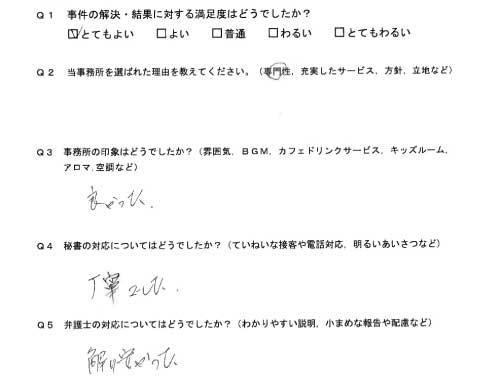 Q1 事件の解決・結果に対する満足度はどうでしたか?
☑とてもよい □よい □普通 □わるい □とてもわるい
Q2 当事務所を選ばれた理由を教えてください。(専門性, 充実したサービス, 方針, 立地など)
Q3 事務所の印象はどうでしたか?(雰囲気, BGM, カフェドリンクサービス, キッズルーム,
アロマ, 空調など)
良かった.
Q4 秘書の対応についてはどうでしたか?(ていねいな接客や電話対応, 明るいあいさつなど)
丁寧でした.
Q5 弁護士の対応についてはどうでしたか?(わかりやすい説明, 小まめな報告や配慮など)
解り安かった